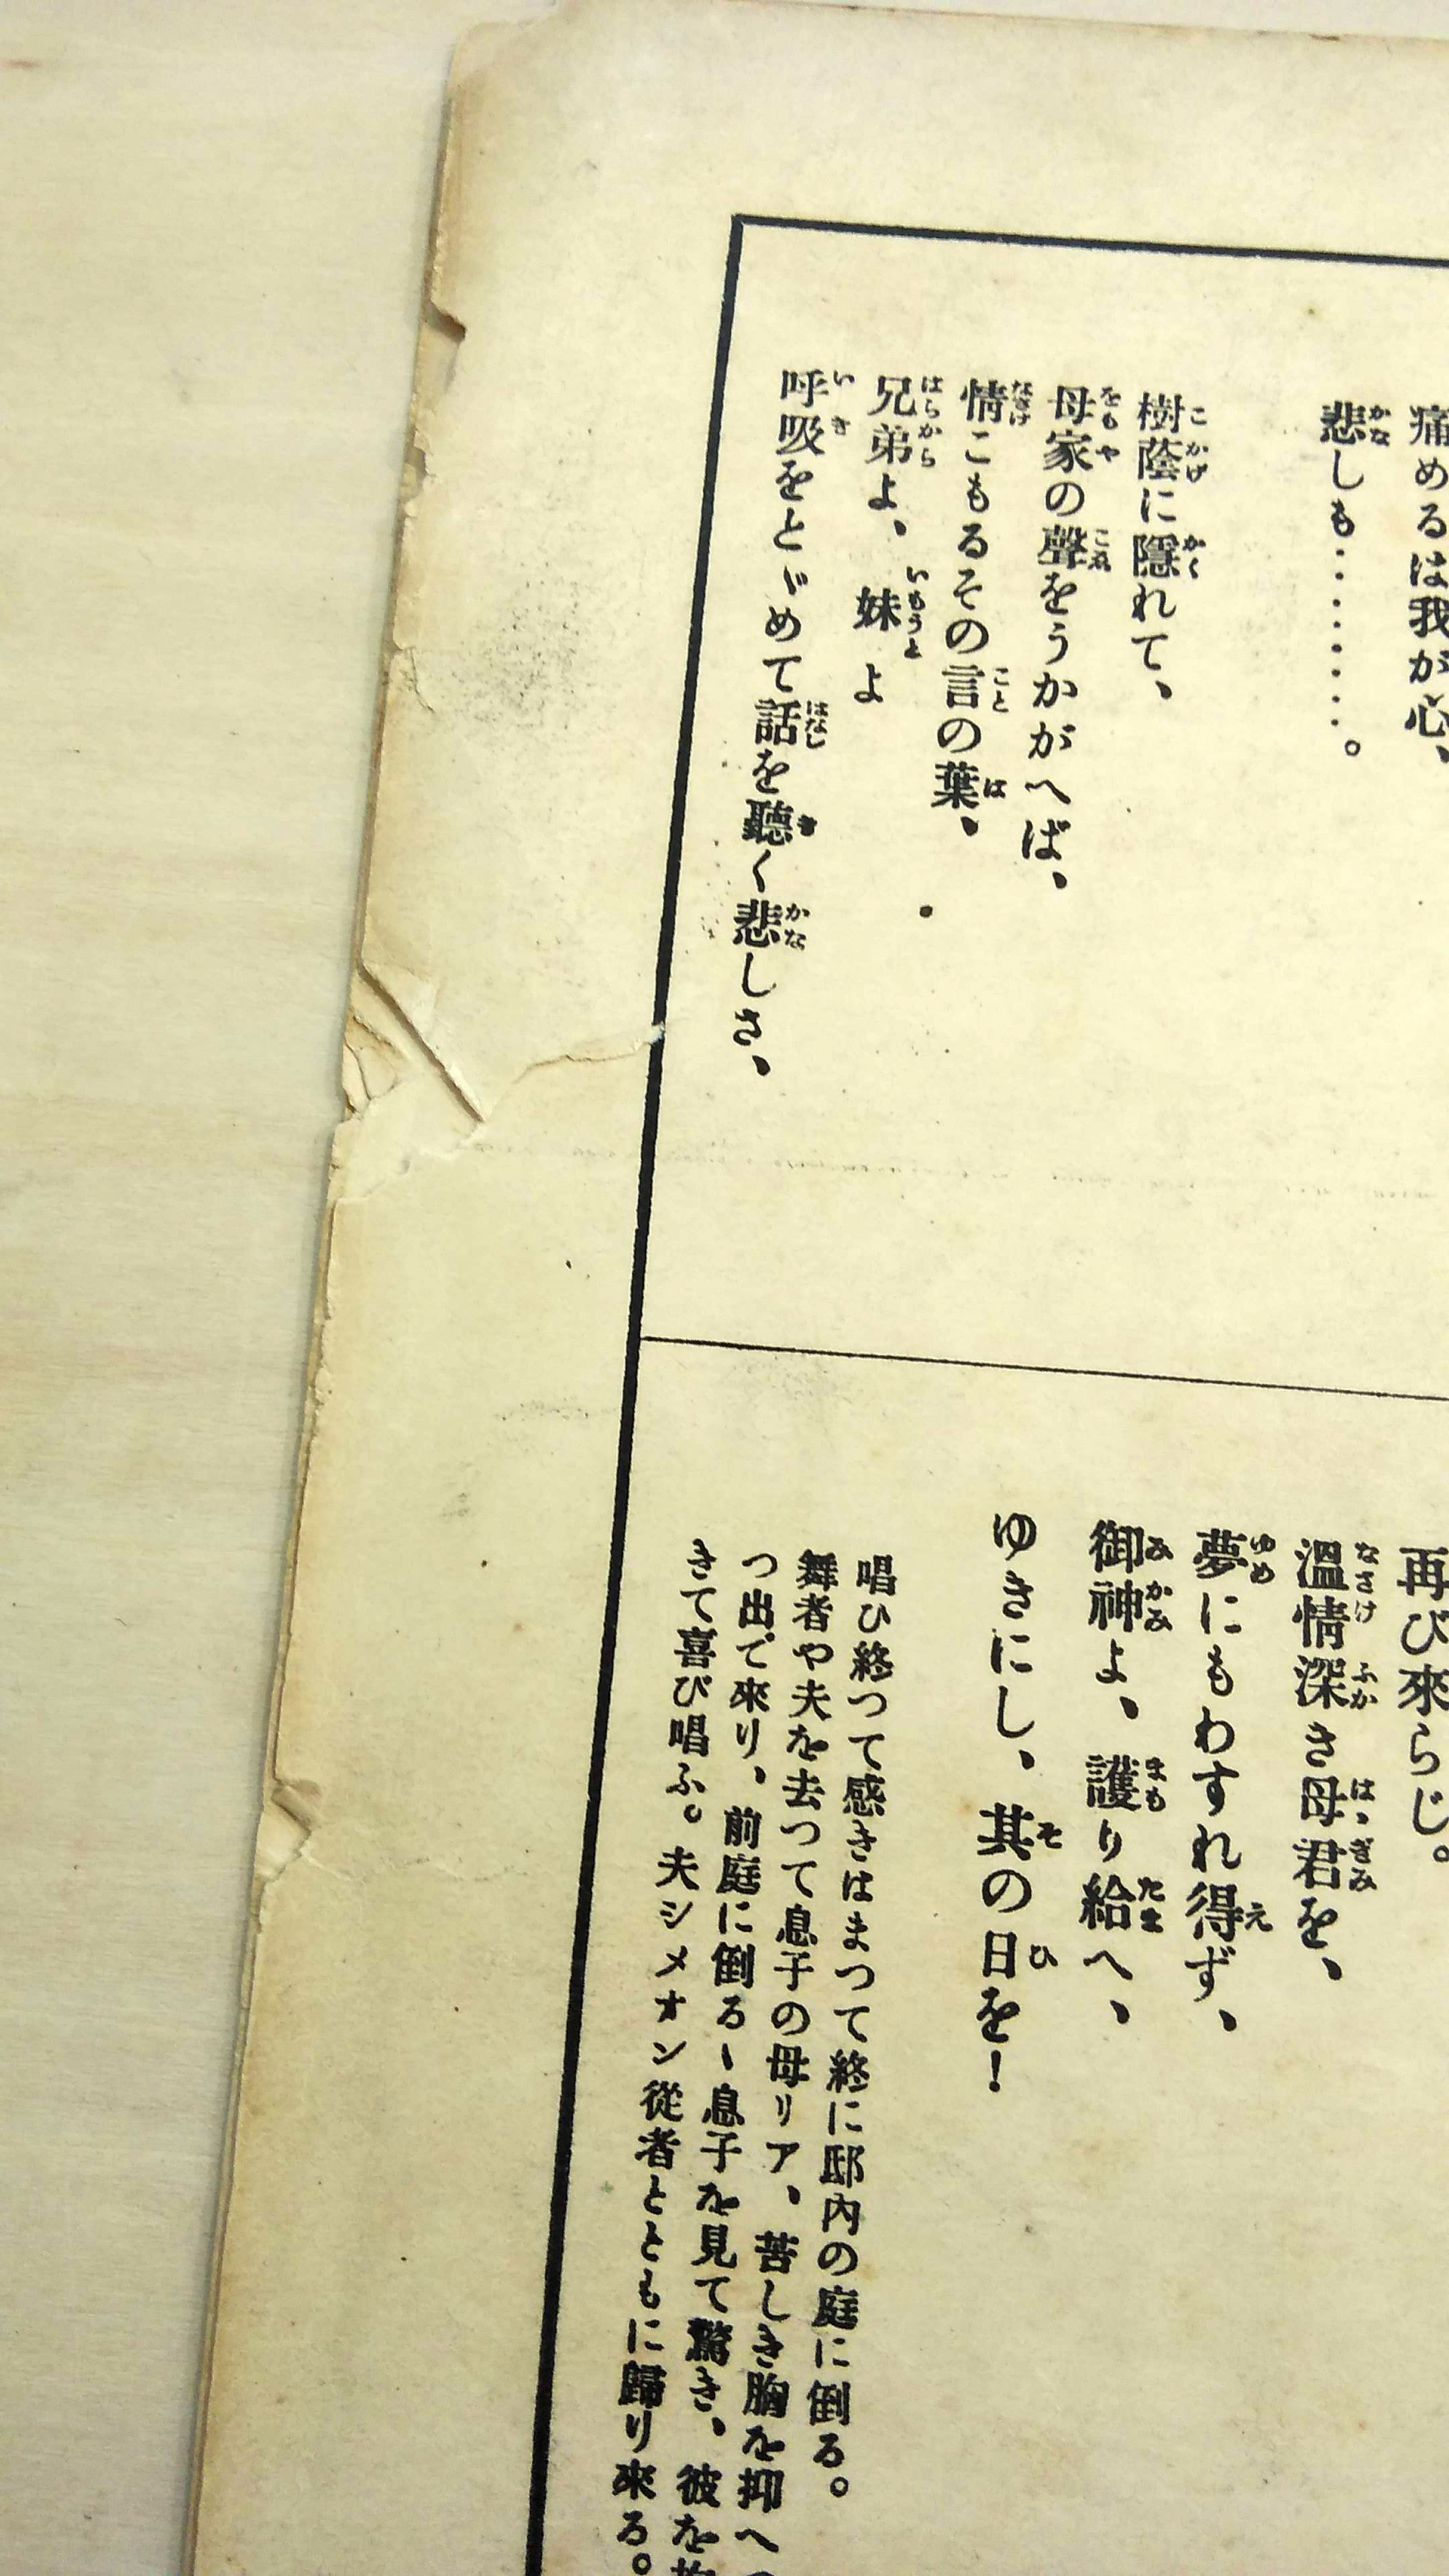 痛めるは我が心、
悲しも………。
樹蔭に隱れて、
母家の聲をうかがへば、
情こもるその言の葉、
兄弟よ、妹よ
呼吸をとゞめて話を聽く悲しさ、
再び來らじ。
溫情深き母君を、
夢にもわすれ得ず、
御神よ、護り給へ、
ゆきにし、其の日を!
唱ひ終つて感きはまつて終に邸內の庭に倒る。
舞者や夫を去つて息子の母リア、苦しき胸を抑へつ
つ出で來り、前庭に倒るゝ息子を見て驚き、彼を抱
きて喜び唱ふ。夫シメオン從者とともに歸り來る。